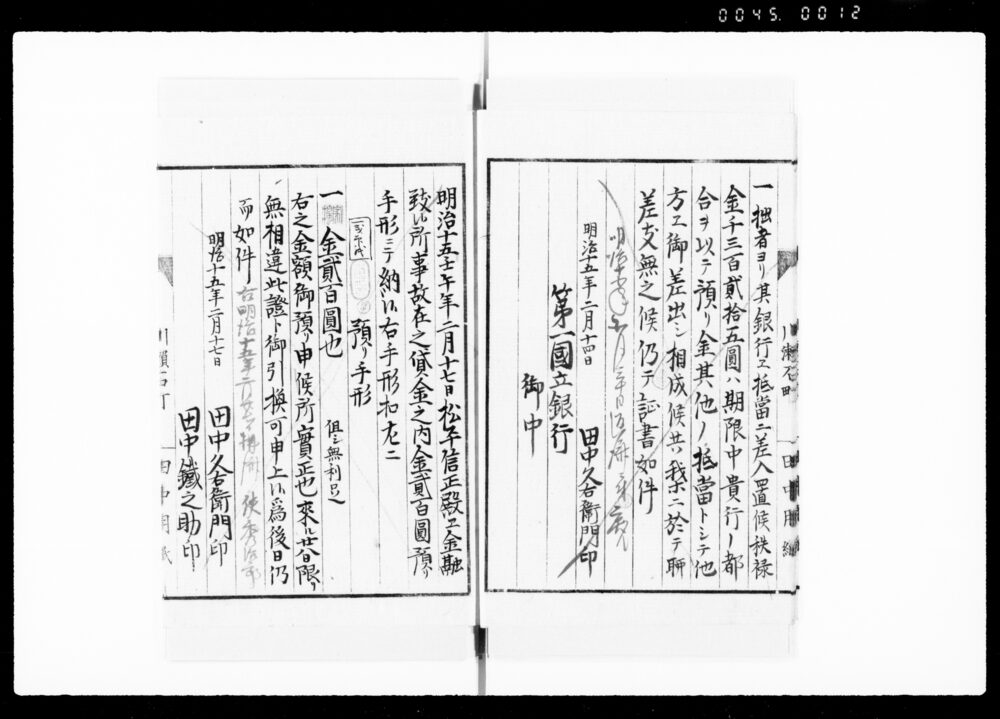 0045. 0012
一 拙者ヨリ其銀行エ抵當ニ差入置候秩禄
金千三百貳拾五圓ハ期限中貴行ノ都
合ヲ以テ預リ金其他ノ抵當トシテ他
方エ御差出シ相成候共我等ニ於テ聊
差支無之候仍テ証書如件
明治十五年二月十四日
田中久右衛門印
第一國立銀行
御中
田中用紙
明治十五壬午年二月十七日松平信正殿エ金融
致候所事故在之貸金之内金貳百圓預リ
手形ニテ納候右手形扣左ニ
預リ手形
一 金貳百圓也
但シ無利足
右之金額御預リ申候所實正也來ル廿八日限リ
無相違此證ト御引換可申上候爲後日仍
而如件
明治十五年二月十七日
田中久右衛門印
田中鐵之助印
田中用紙